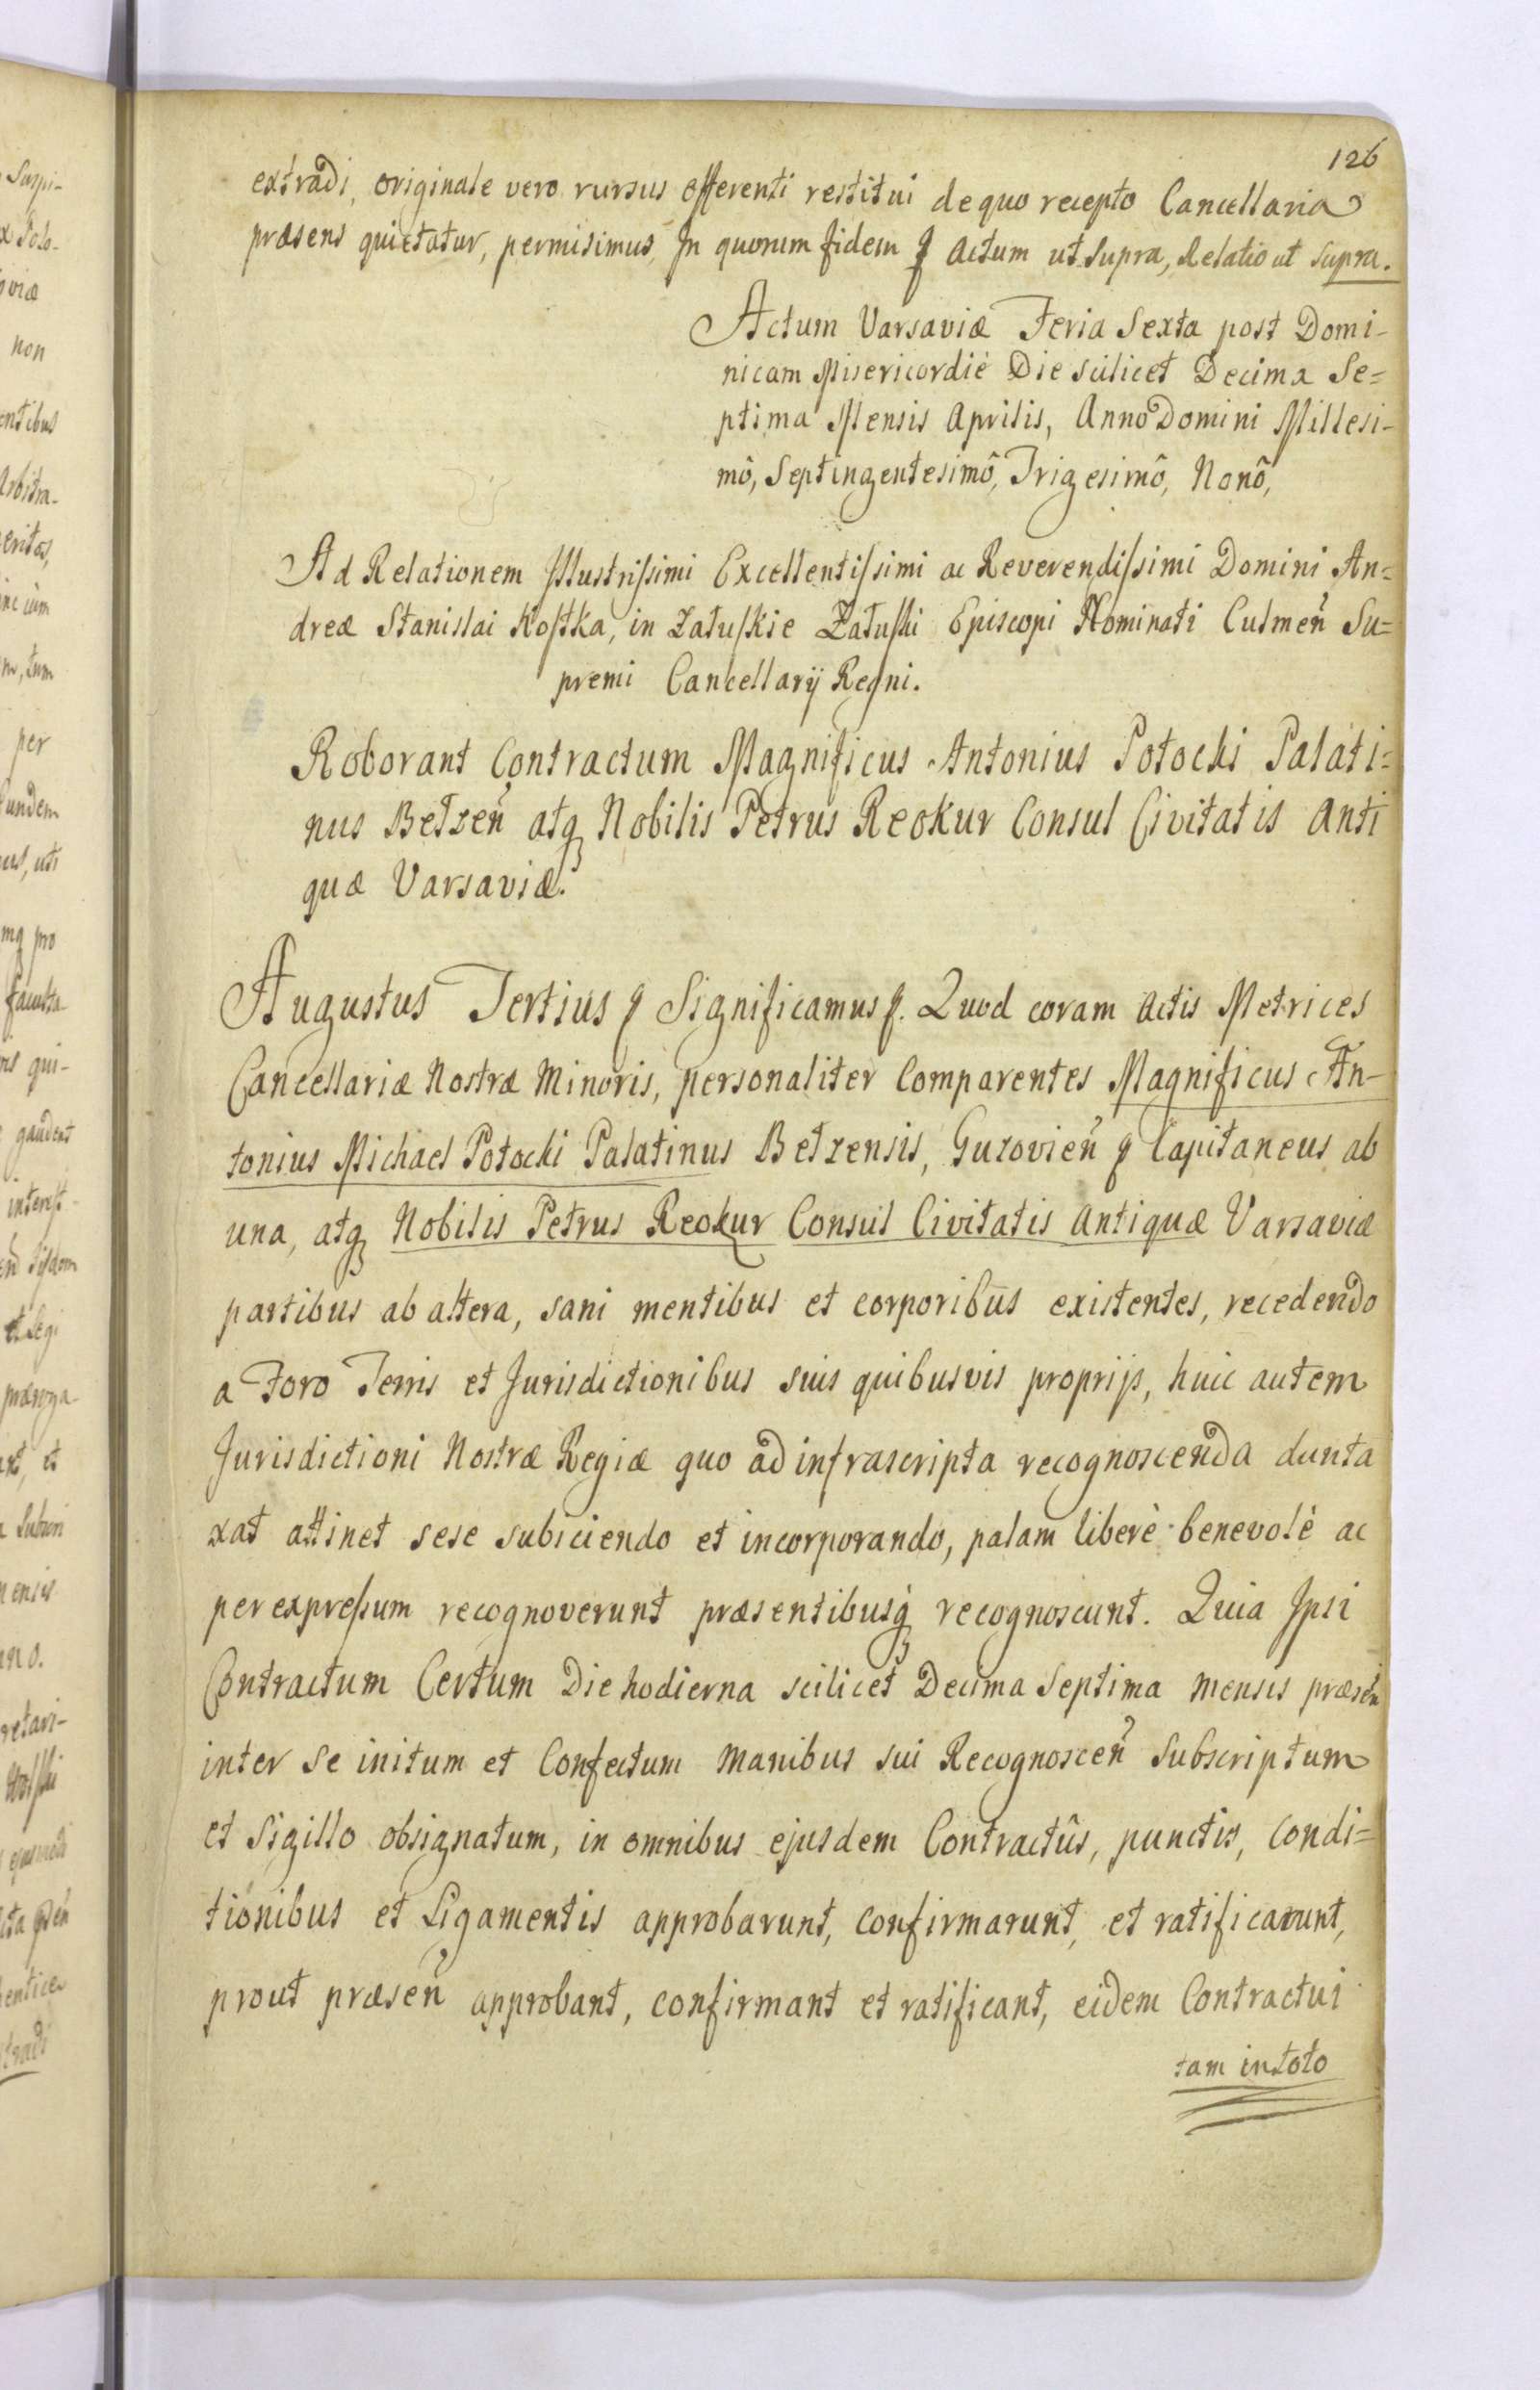 126
extradi, originale vero rursus offerenti restitui de quo recepto Cancellaria
præsens quietatur, permisimus, In quorum fidem & Actum ut supra, Relatio ut supra.
Actum Varsaviæ Feria Sexta post Domi-
nicam Misericordiè Die scilicet Decima Se=
ptima Mensis Aprilis, Anno Domini Millesi-
mô, Septingentesimô, Trigesimô, Nonô,
Ad Relationem Illustrissimi Excellentissimi ac Reverendissimi Domini An=
dreæ Stanislai Kostka, in Załuskie Załuski Episcopi Nominati Culmeñ Su=
premi Cancellarij Regni.
Roborant Contractum Magnificus Antonius Potocki Palati=
nus Bełzeñ atq Nobilis Petrus Reokur Consul Civitatis Anti
quæ Varsaviæ.
Augustus Tertius & Significamus &. Quod coram Actis Metrices
Cancellariæ Nostræ Minoris, personaliter Comparentes Magnificus An-
tonius Michael Potocki Palatinus Bełzensis, Guzovieñ & Capitaneus ab
una, atq Nobilis Petrus Reokur Consul Civitatis Antiquæ Varsaviæ
partibus ab altera, sani mentibus et corporibus existentes, recedendo
a Foro Terris et Jurisdictionibus suis quibusvis proprijs, huic autem
Jurisdictioni Nostræ Regiæ quo ad infrascripta recognoscenda dunta
xat attinet sese subiciendo et incorporando, palam liberè benevolè ac
per expressum recognoverunt præsentibusq recognoscunt. Quia Ipsi
Contractum Certum Die hodierna scilicet Decima Septima mensis præsen
inter se initum et Confectum manibus sui Recognosceñ subscriptum
et Sigillo obsignatum, in omnibus ejusdem Contractûs, punctis, condi=
tionibus et Ligamentis approbarunt, confirmarunt, et ratificarunt,
prout præseñ approbant, confirmant et ratificant, eidem Contractui
tam in toto